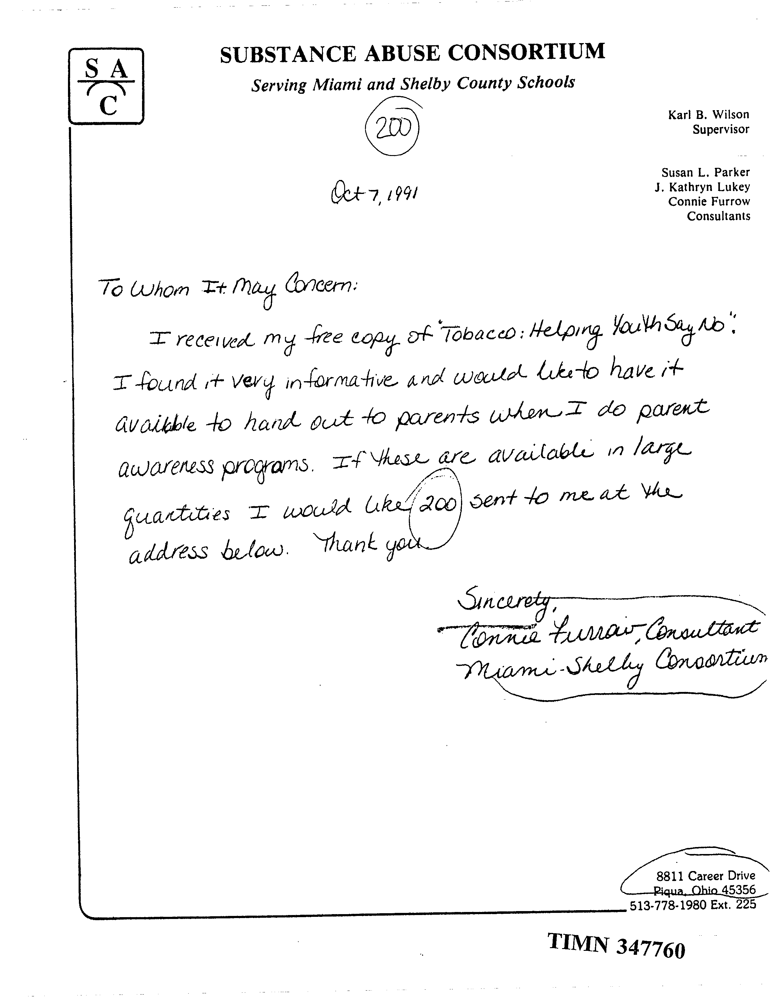 S A
C
SUBSTANCE ABUSE CONSORTIUM
Serving Miami and Shelby County Schools
200
Karl B. Wilson
Supervisor
Susan L. Parker
J. Kathryn Lukey
Connie Furrow
Consultants
Oct 7, 1991
To Whom It May Concern:
I received my free copy of "Tobacco: Helping Youth Say No".
I found it very informative and would like to have it
available to hand out to parents when I do parent
awareness programs. If these are available in large
quantities I would like 200 sent to me at the
address below. Thank you
Sincerely,
Connie Furrow, Consultant
Miami-Shelby Consortium
8811 Career Drive
Piqua, Ohio 45356
513-778-1980 Ext. 225
TIMN 347760